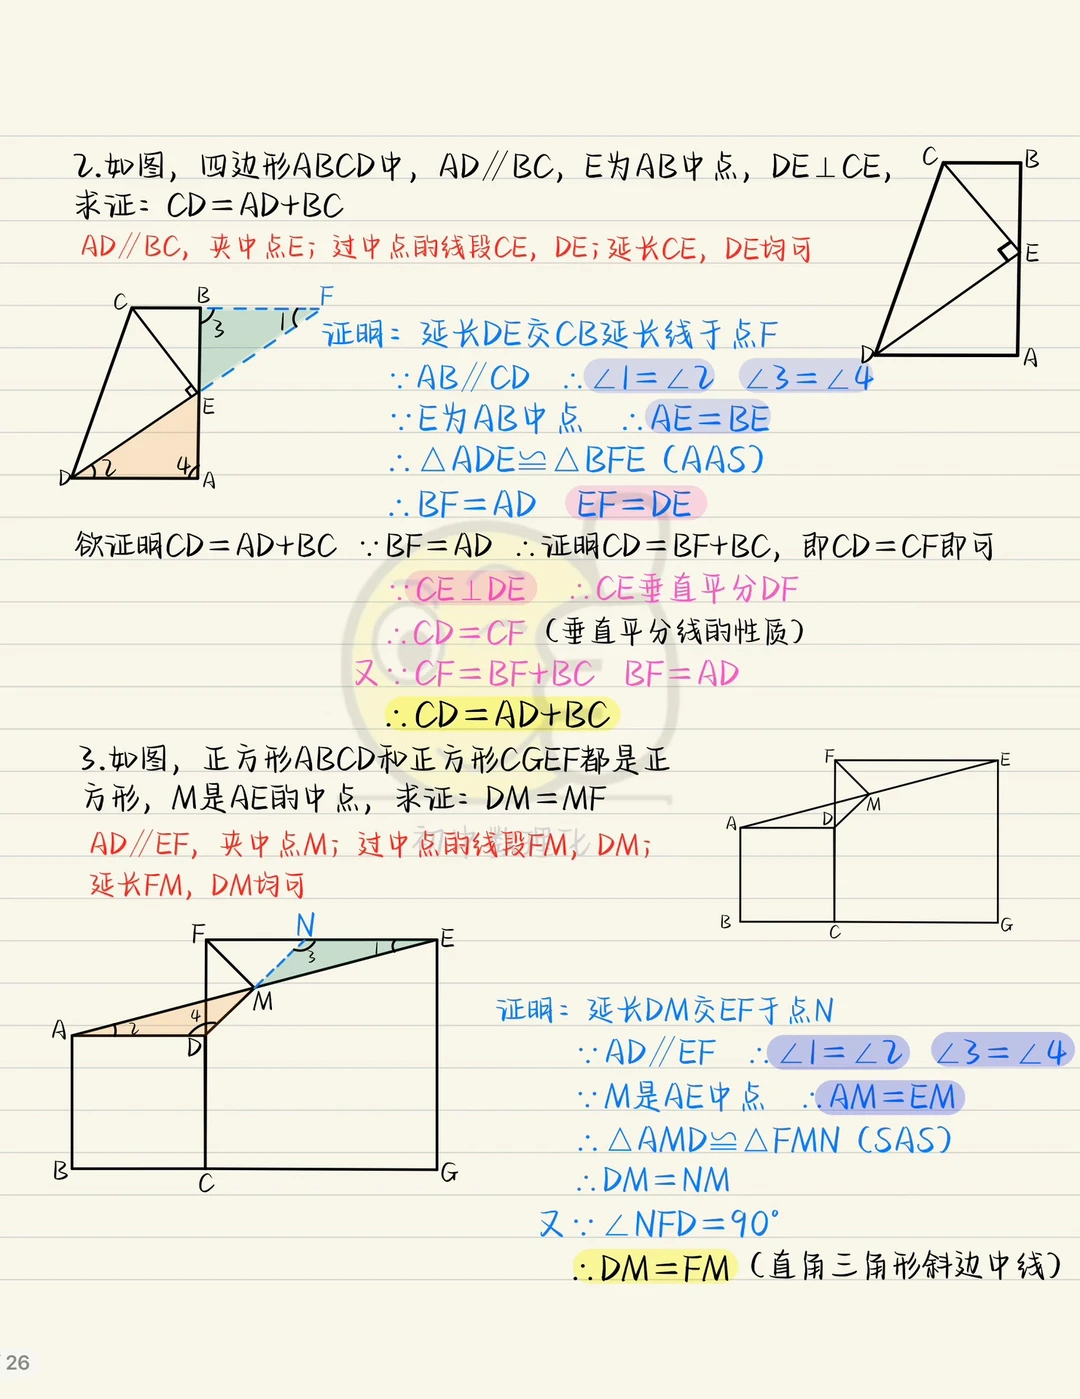 2.如图，四边形ABCD中，AD∥BC，E为AB中点，DE⊥CE，
求证：CD=AD+BC
AD∥BC，夹中点E；过中点的线段CE，DE；延长CE，DE均可
C
B
E
D
A
C
B
F
3
1
E
D
2
4
A
证明：延长DE交CB延长线于点F
∵AB∥CD ∴∠1=∠2 ∠3=∠4
∵E为AB中点 ∴AE=BE
∴△ADE≌△BFE（AAS）
∴BF=AD EF=DE
欲证明CD=AD+BC ∵BF=AD ∴证明CD=BF+BC，即CD=CF即可
∵CE⊥DE ∴CE垂直平分DF
∴CD=CF（垂直平分线的性质）
又∵CF=BF+BC BF=AD
∴CD=AD+BC
3.如图，正方形ABCD和正方形CGEF都是正
方形，M是AE的中点，求证：DM=MF
AD∥EF，夹中点M；过中点的线段FM，DM；
延长FM，DM均可
初中数理化
F
E
M
A
D
B
C
G
F
N
E
3
1
M
A
2
4
D
B
C
G
证明：延长DM交EF于点N
∵AD∥EF ∴∠1=∠2 ∠3=∠4
∵M是AE中点 ∴AM=EM
∴△AMD≌△FMN（SAS）
∴DM=NM
又∵∠NFD=90°
∴DM=FM（直角三角形斜边中线）
26